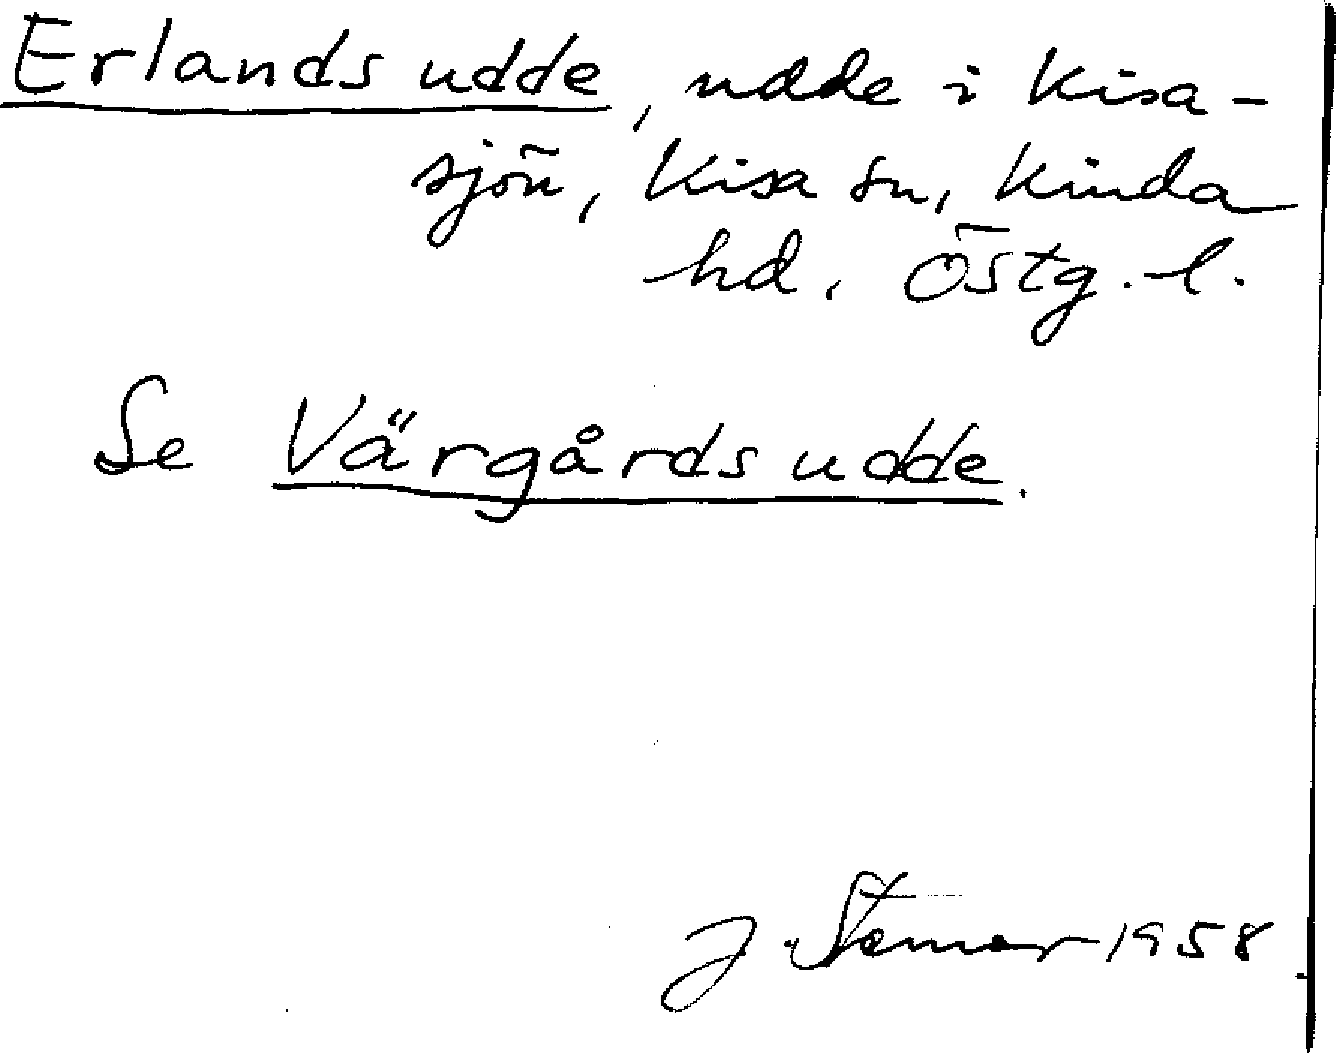 Erlands udde, udde i Kisa-
sjön, Kisa sn, Kinda
hd, Östg. l.
Se Värgårds udde.
J. Stemor 1958